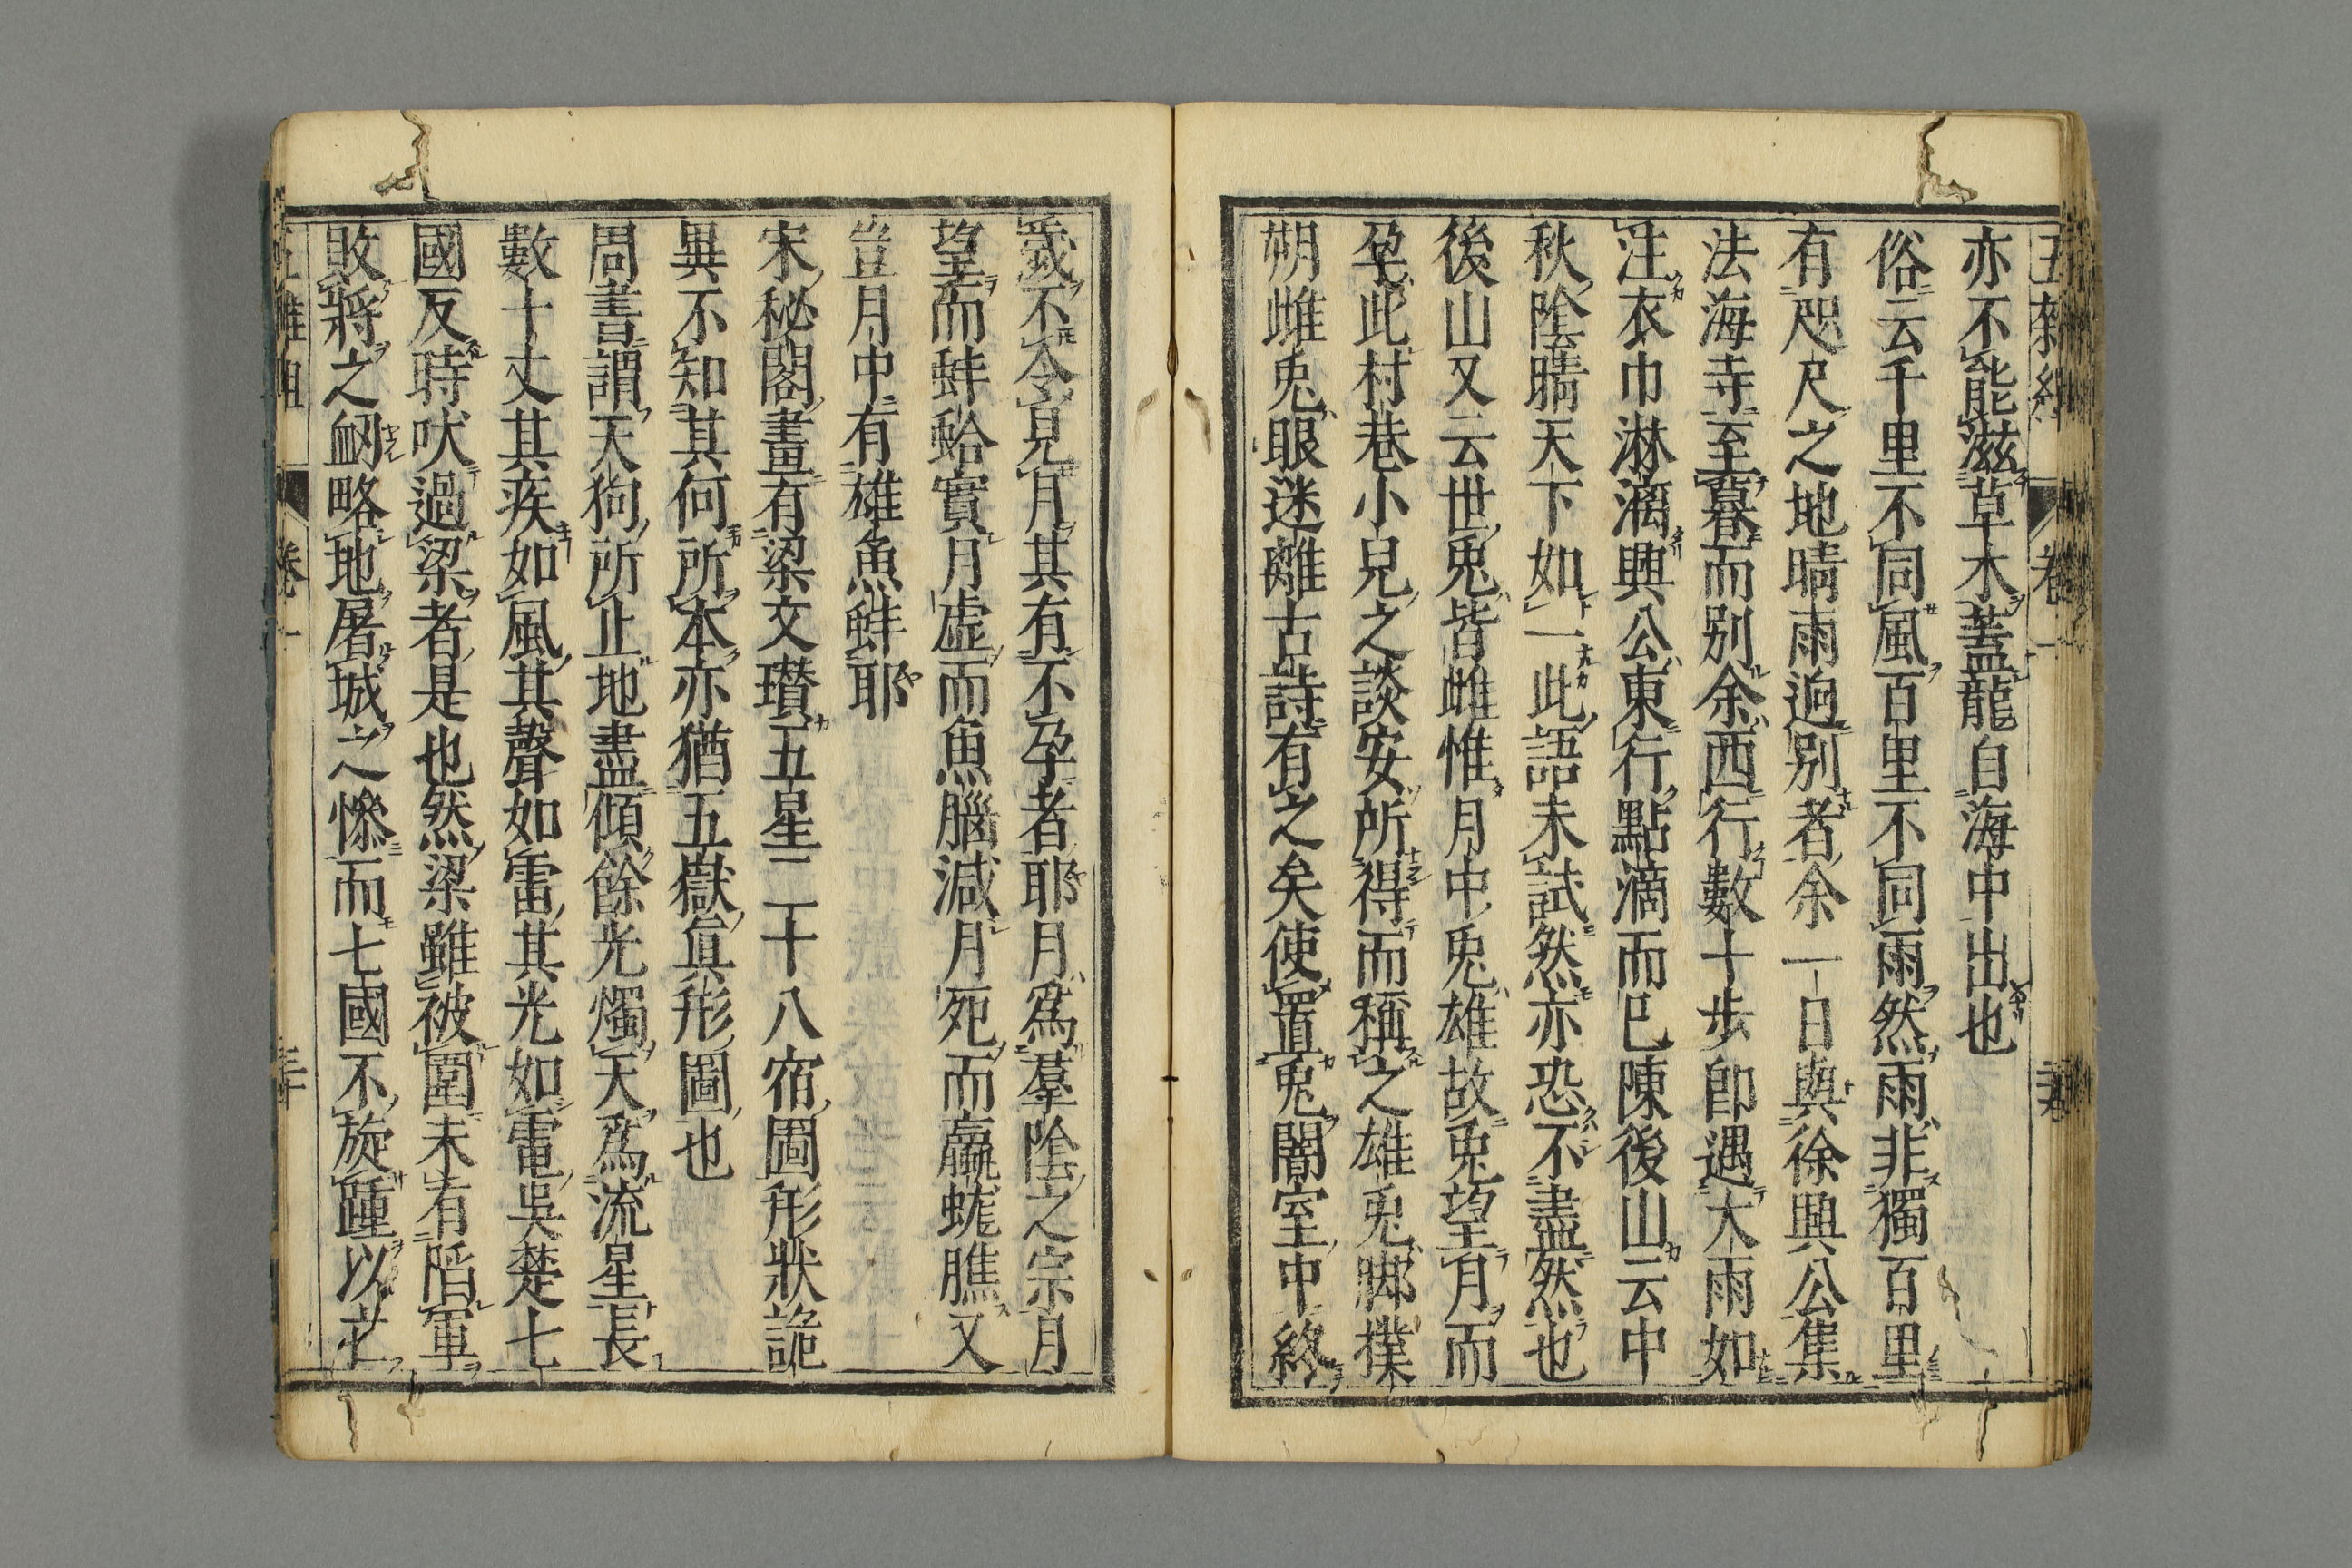 亦不能滋草木蓋龍自海中出也
俗云千里不同風百里不同雨然雨非獨百里
有咫尺之地晴雨逈別者余一日與徐興公集
法海寺至暮而別余西行數十步卽遇大雨如
注衣巾淋漓興公東行點滴而已陳後山云中
秋陰晴天下如一此語未試然亦恐不盡然也
後山又云世兎皆雌惟月中兎雄故兎望月而
孕此村巷小兒之談安所得而稱之雄兎脚撲
朔雌兎眼迷離古詩有之矣使置兎闇室中終
歲不令見月其有不孕者耶月爲羣陰之宗月
望而蚌蛤實月虛而魚腦減月死而蠃蛖膲又
豈月中有雄魚蚌耶
宋秘閣畫有梁文瓚五星二十八宿圖形狀詭
異不知其何所本亦猶五嶽眞形圖也
周書謂天狗所止地盡傾餘光燭天爲流星長
數十丈其疾如風其聲如雷其光如電吳楚七
國反時吠過梁者是也然梁雖被圍未有陷軍
敗將之衂略地屠城之慘而七國不旋踵以亡
卷一